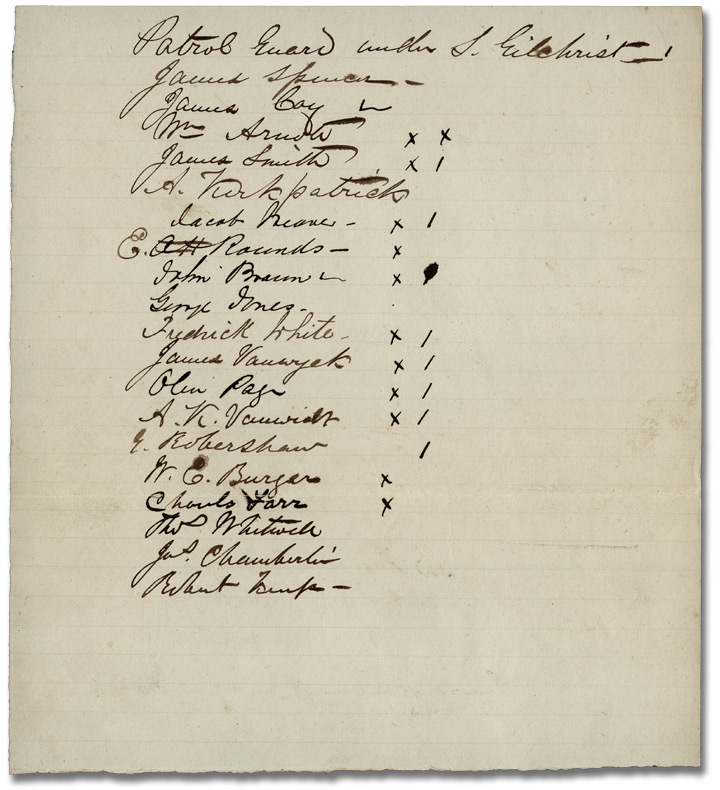 Patrol Guard under S. Gilchrist — 1
James Spencer —
James Coy
Wm Arnott x x
James Smith x 1
A. Kirkpatrick
Jacob Weaver - x 1
E. Rounds — x
John Braun x
George Jones -
Fredrick White - x 1
James Vanwyck x 1
Olin Page x 1
A. K. Vanwidt x 1
E. Robershaw 1
W. E. Burger x
Charls Farr x
Thos Whitwell
Jas. Chamberlin
Robert Kemp —